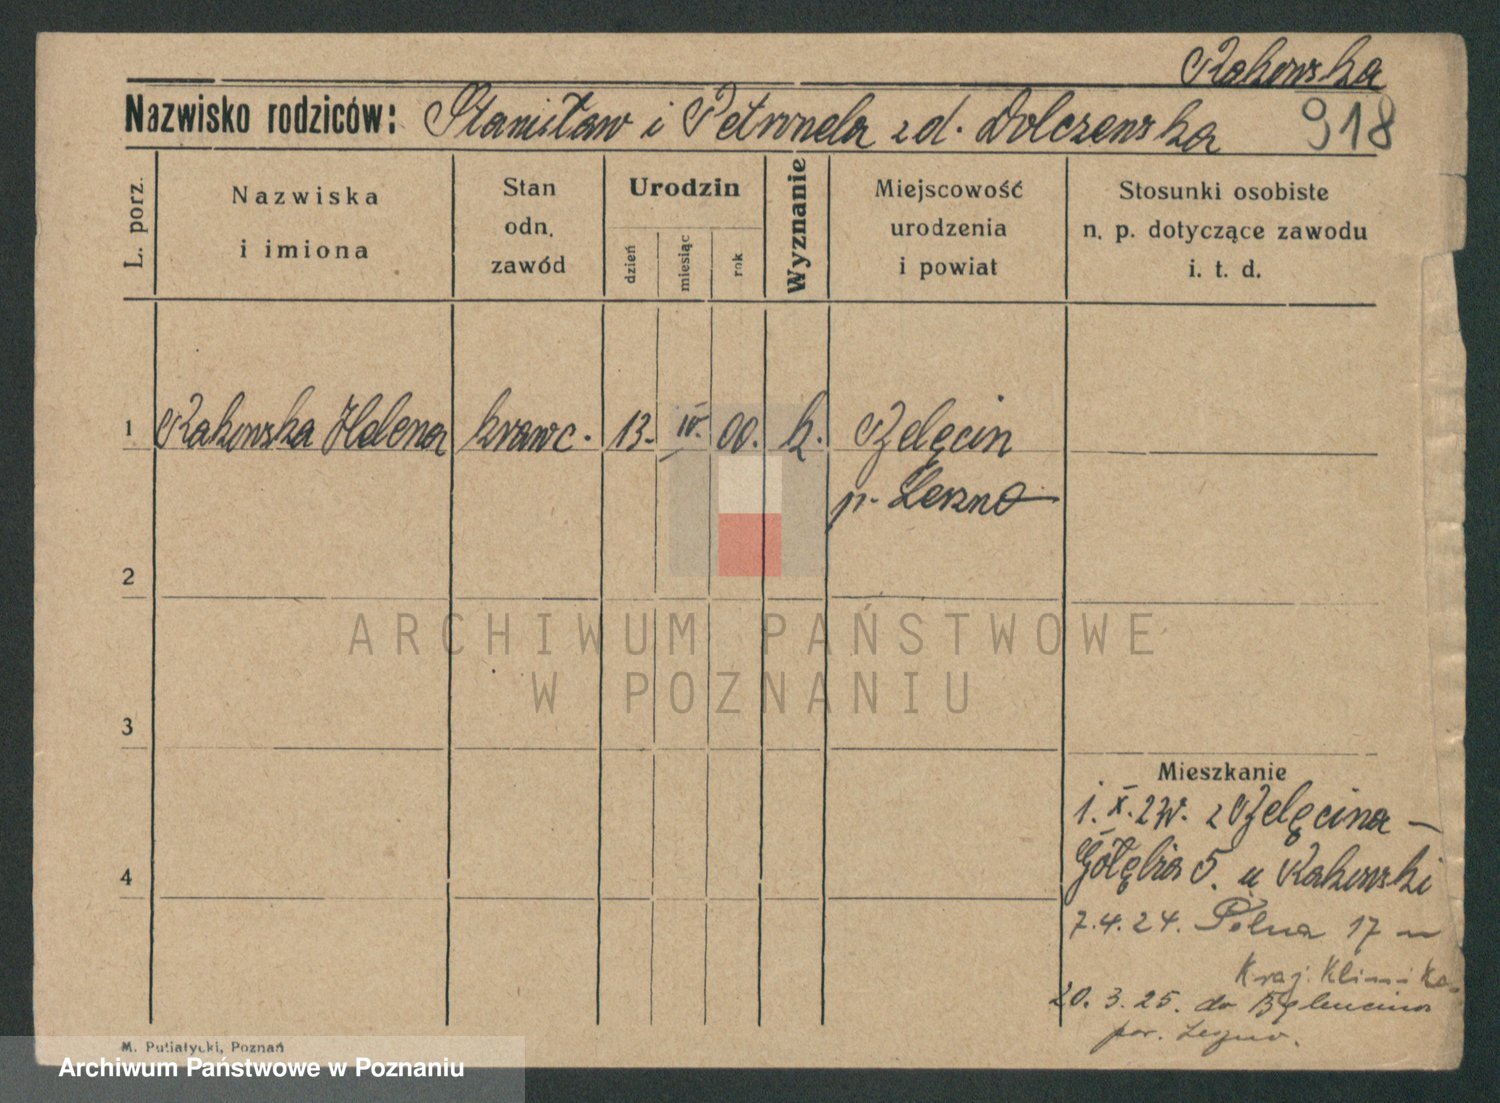 Rakowska
Nazwisko rodziców: Stanisław i Petronela z d. Dolczewska 918
L. porz.
Nazwiska
i imiona
Stan
odn.
zawód
Urodzin
dzień
miesiąc
rok
Wyznanie
Miejscowość
urodzenia
i powiat
Stosunki osobiste
n. p. dotyczące zawodu
i. t. d.
1 Rakowska Helena krawc. 13. IV. 00. k.
p. Leszno
2
3
4
ARCHIWUM PAŃSTWOWE
W POZNANIU
Mieszkanie
1. X. z
Gołębia 5. u Rakowski
7.4.24. Polna 17
Kraj. Klinika
20. 3. 25. do
pow. Leszno.
M. Putiatycki, Poznań
Archiwum Państwowe w Poznaniu